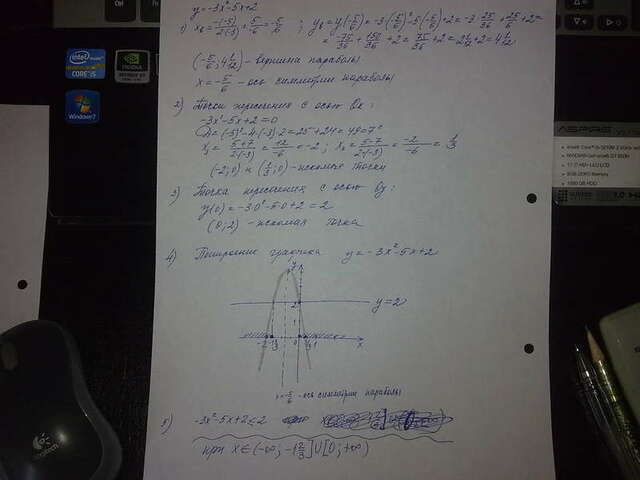 y=-3x²-5x+2
1) x₈ = -(-5)/2(-3) = 5/-6 = -5/6 ; y₈ = y(-5/6) = -3·(-5/6)²-5·(-5/6)+2 = -3·25/36+25/6+2=
= -75/36+150/36+2 = 75/36+2 = 2 1/12+2 = 4 1/12
(-5/6; 4 1/12) - вершина параболы
x = -5/6 - ось симметрии параболы
2) Точки пересечения с осью Ox:
-3x²-5x+2=0
D=(-5)²-4·(-3)·2=25+24=49=7²
x₁ = 5+7/2(-3) = 12/-6 = -2; x₂ = 5-7/2(-3) = -2/-6 = 1/3
(-2;0) и (1/3;0) - искомые точки
3) Точка пересечения с осью Oy:
y(0) = -3·0²-5·0+2 = 2
(0;2) - искомая точка
4) Построение графика y=-3x²-5x+2
y
2
y=2
-2
0
1
x
x=-5/6 - ось симметрии параболы
5) -3x²-5x+2≤2
при x∈(-∞; -1 2/3]∪[0; +∞)
intel
CORE i5
NVIDIA
Windows 7
ASPIRE
Logitech
Ctrl